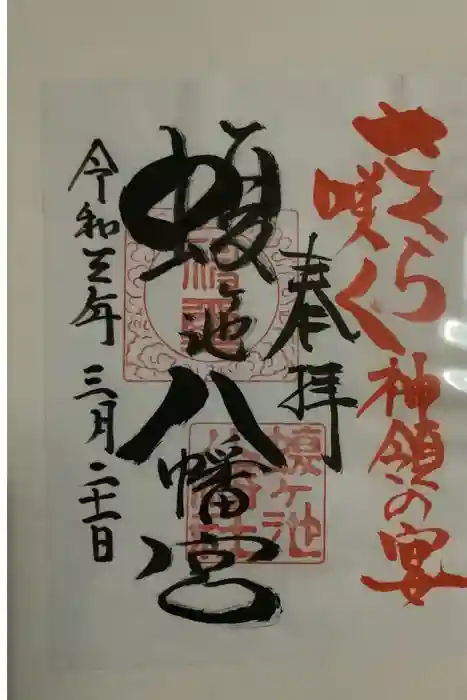 さくら
咲く
神領の宴
奉拝
蝮ヶ池八幡宮
蝮ヶ池
令和三年 三月二十一日